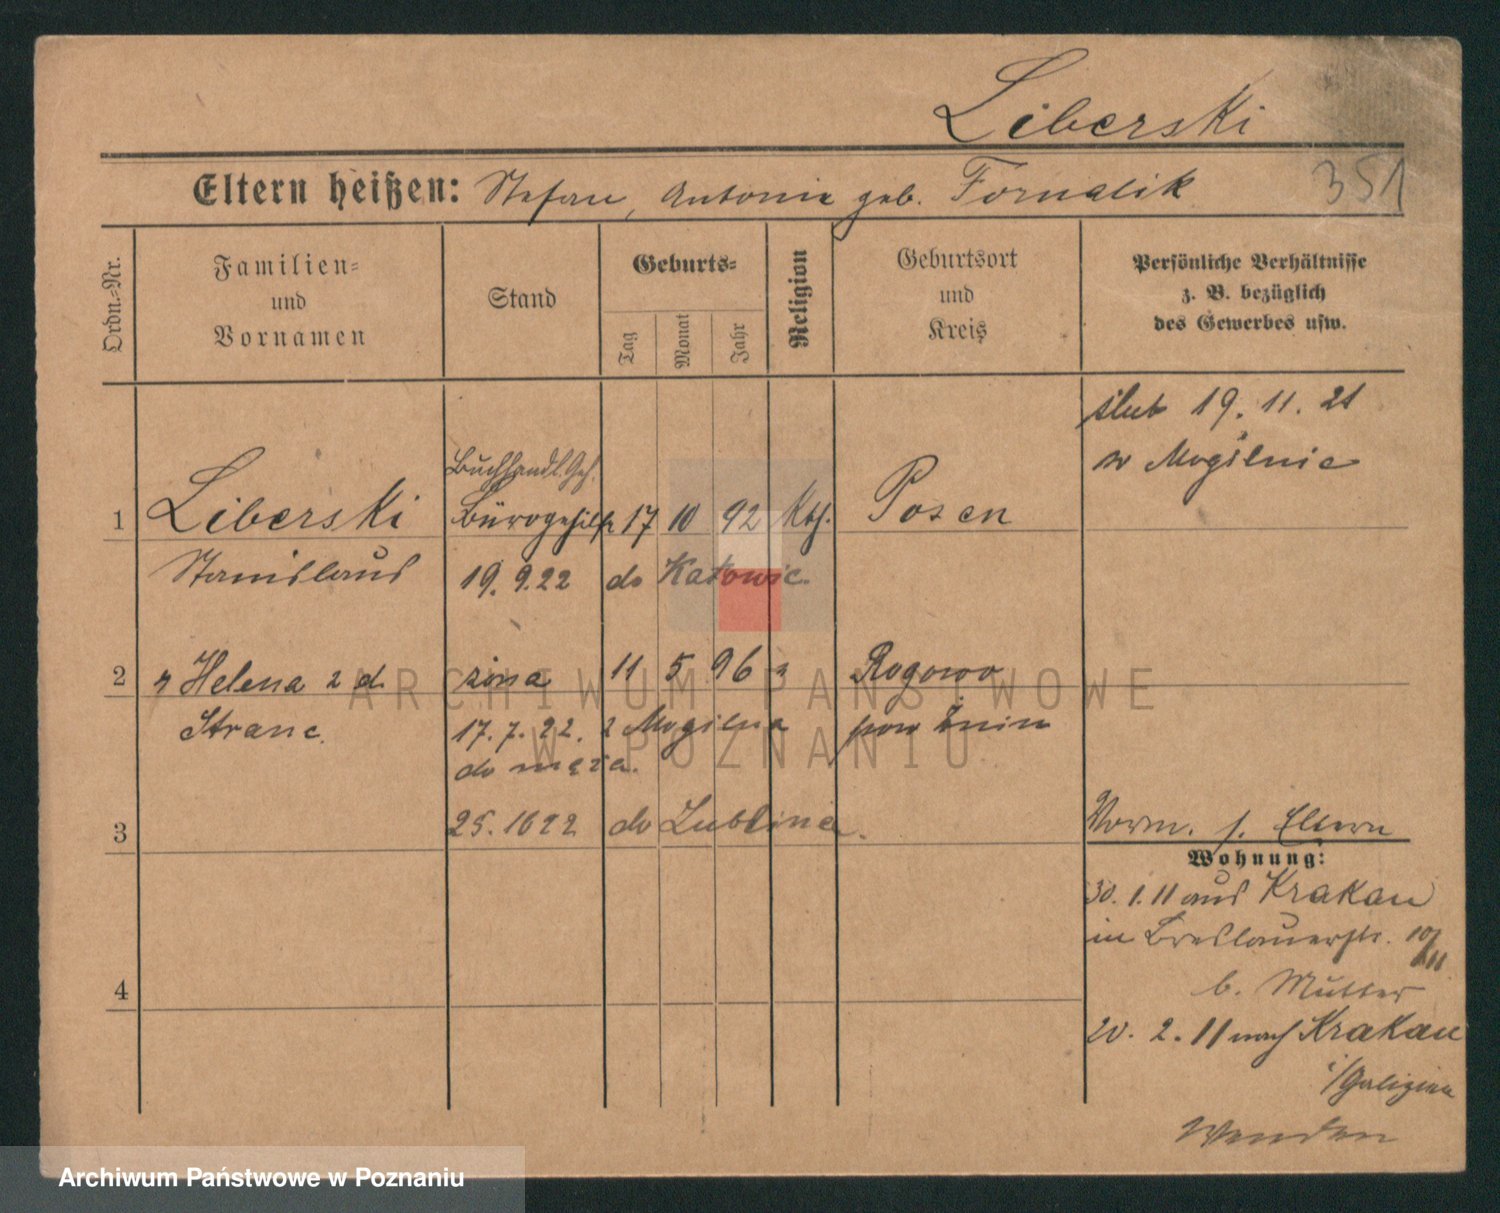 Liberski
351
Eltern heißen: Stefan, Antonie geb. Fornalik
Ordn.-Nr.
Familien-
und
Vornamen
Stand
Geburts-
Tag
Monat
Jahr
Religion
Geburtsort
und
Kreis
Persönliche Verhältnisse
z. B. bezüglich
des Gewerbes usw.
ślub 19. 11. 21
w Mogilnie
Buchhandl. Geh.
1 Liberski Bürogehilfe 17 10 92 Kth. Posen
Stanislaus 19. 9. 22 do Katowic.
2 Helena z d. żona 11 5 96 Rogowo
Stranc. 17. 7. 22. z Mogilna pow Żnin
do męża.
3 25. 10 22 do Lublina.
Vorm. s. Eltern
Wohnung:
30. 1. 11 aus Krakau
in Breslauerstr. 10/11
b. Mutter
4
20. 2. 11 nach Krakau
i/Galizien
Wenden
ARCHIWUM PAŃSTWOWE
W POZNANIU
Archiwum Państwowe w Poznaniu